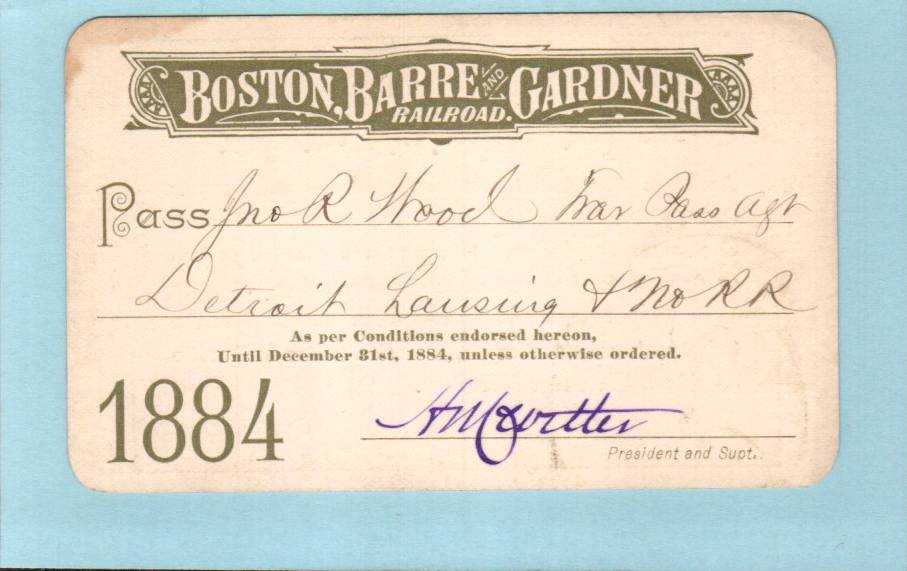 BOSTON, BARRE AND GARDNER
RAILROAD.
Pass Jno R Wood Trav Pass Agt
Detroit Lansing & No RR
As per Conditions endorsed hereon,
Until December 31st, 1884, unless otherwise ordered.
1884
President and Supt.